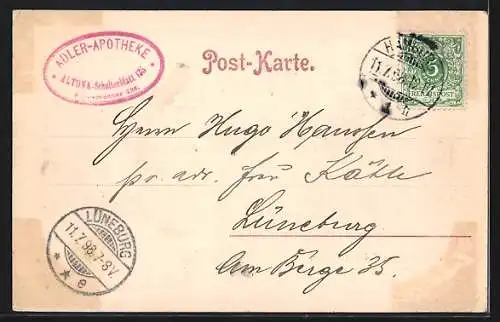 ADLER-APOTHEKE
ALTONA-Schulterblatt 135
Post-Karte.
HAMBURG
11.7.98
5
REICHSPOST
Herrn Hugo Hanssen
pr. adr. Frau Käthe
Lüneburg
Am Berge 35.
LÜNEBURG
11.7.98.7-8V.
* * e